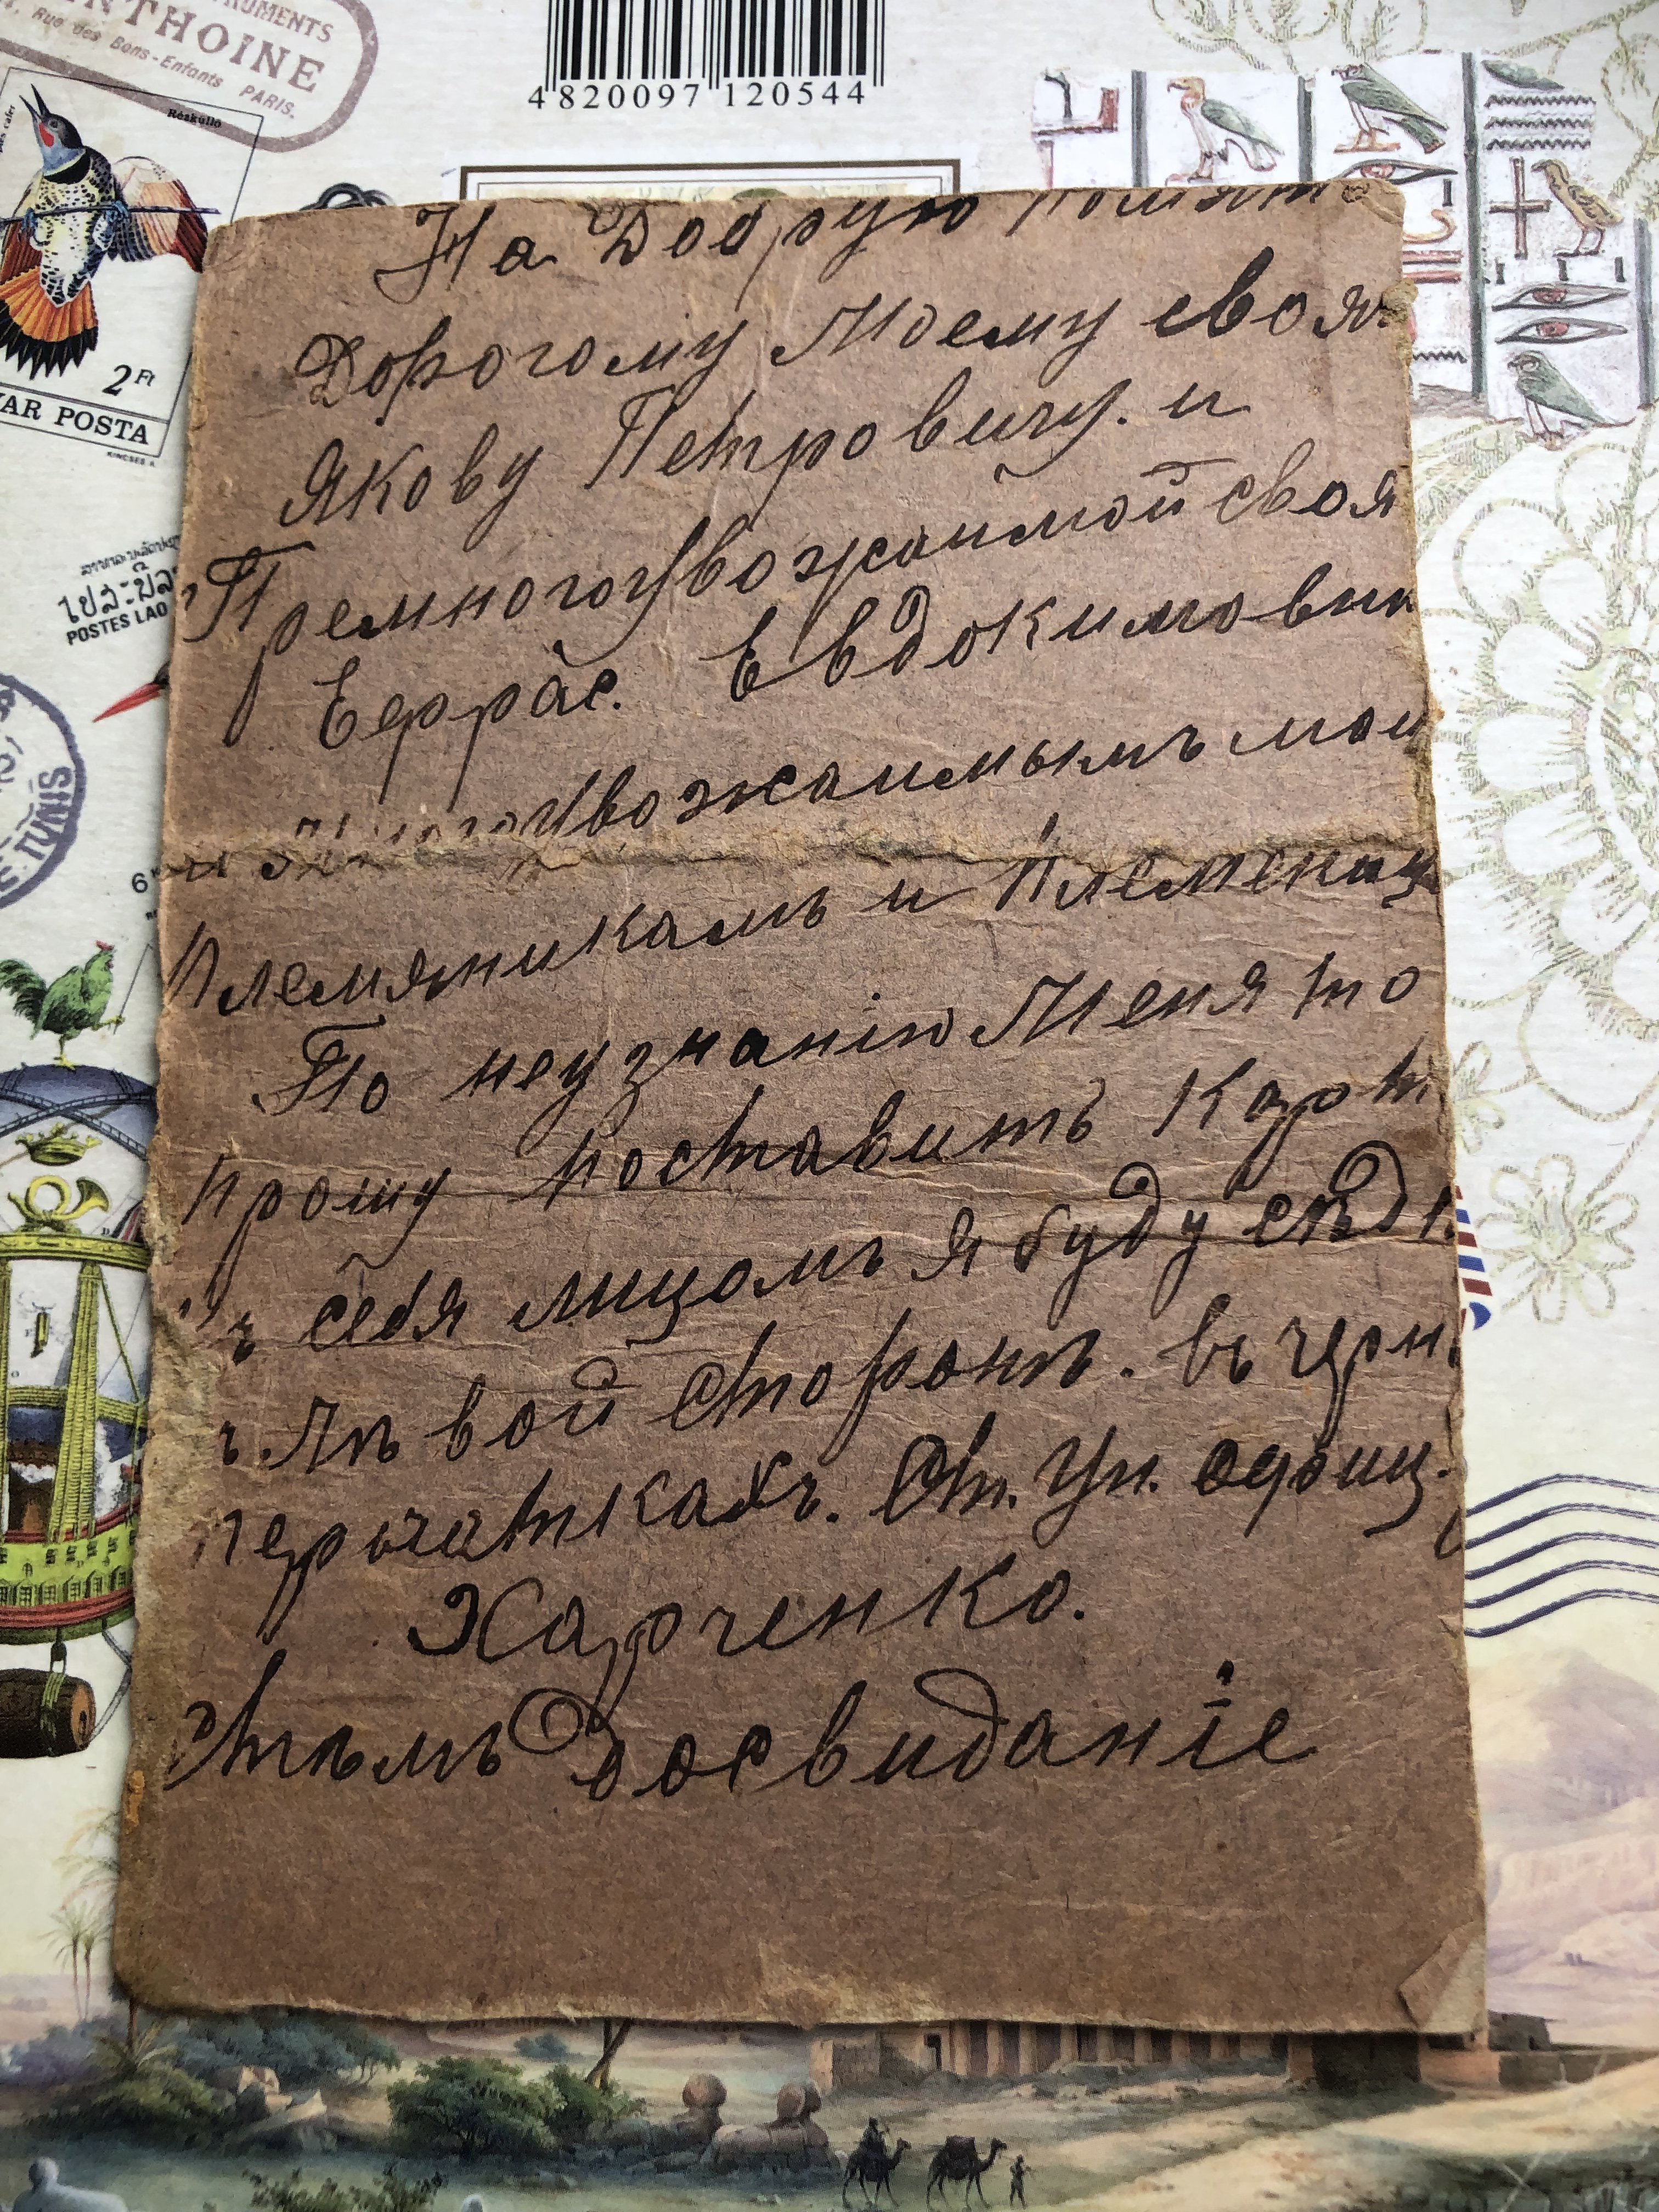 RUMENTS
RTHOINE
Rue des Bons-Enfants PARIS.
4 820097 120544
Rézküllő
2 Ft
YAR POSTA
KINCSES A.
ໄປສະນີລາ
POSTES LAO
TUNIS
6
На Добрую помять
Дорогому Моему своя
Якову Петровичу. и
Премногоувожаимой своя
Ефрас. Евдокимовн
и Многоувожаимымъ мои
Племяникамъ и Племениц
По неузнанію Меня то
прошу поставить Карт
къ себя лицомъ я буду сѣд
ъ Лѣвой Сторонѣ. въ черн
перчаткахъ. От. Ун. офиц.
Харченко.
Затѣмъ досвиданіе